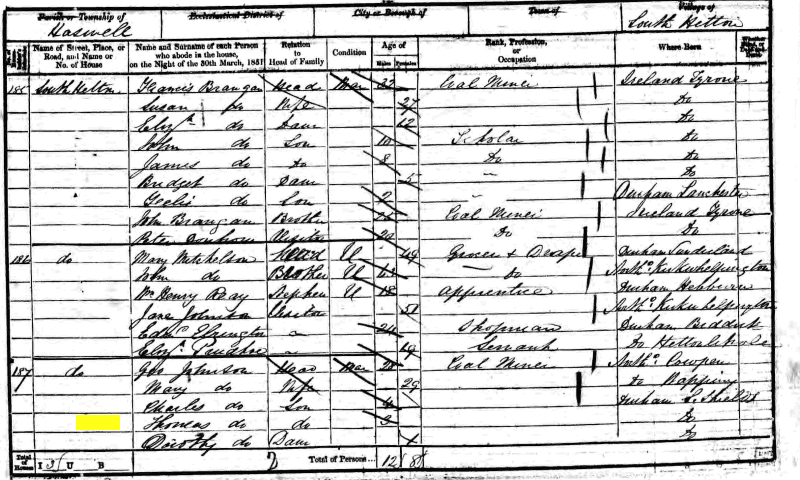 Parish or Township of Haswell
Ecclesiastical District of
City or Borough of
Town of
Village of South Hetton
Name of Street, Place, or Road, and Name or No. of House
Name and Surname of each Person who abode in the house, on the Night of the 30th March, 1851
Relation to Head of Family
Condition
Age of
Males Females
Rank, Profession, or Occupation
Where Born
South Hetton Francis Brangan Head Mar 32 Coal Miner Ireland Tyrone
Susan do Wife 27 do
Elizth do Daur 12 do
John do Son 10 Scholar do
James do do 8 do do
Bridget do Daur 5 " do
Son 2 " Durham Lanchester
John Brangan Brother Coal Miner Ireland Tyrone
Peter Visitor 20 do do
186 do Mary Mitchelson Head U 49 Grocer & Draper Durham Sunderland
John do Brother U do North Kirkwhelpington
Wm Henry Reay Stephen U 18 Apprentice Durham
Jane Johnson Visitor 51 North Kirkwhelpington
Edwd " 24 Shopman Durham Biddick
Elizth " 19 Servant do Hetton le hole
187 do Geo Johnson Head Mar 28 Coal Miner North Cowpen
Mary do Wife 29 do
Charles do Son 4 Durham S. Shields
Thomas do do 3 do
Dorothy do Daur 1 do
Total of Houses I 3 U B 2 Total of Persons... 12 8